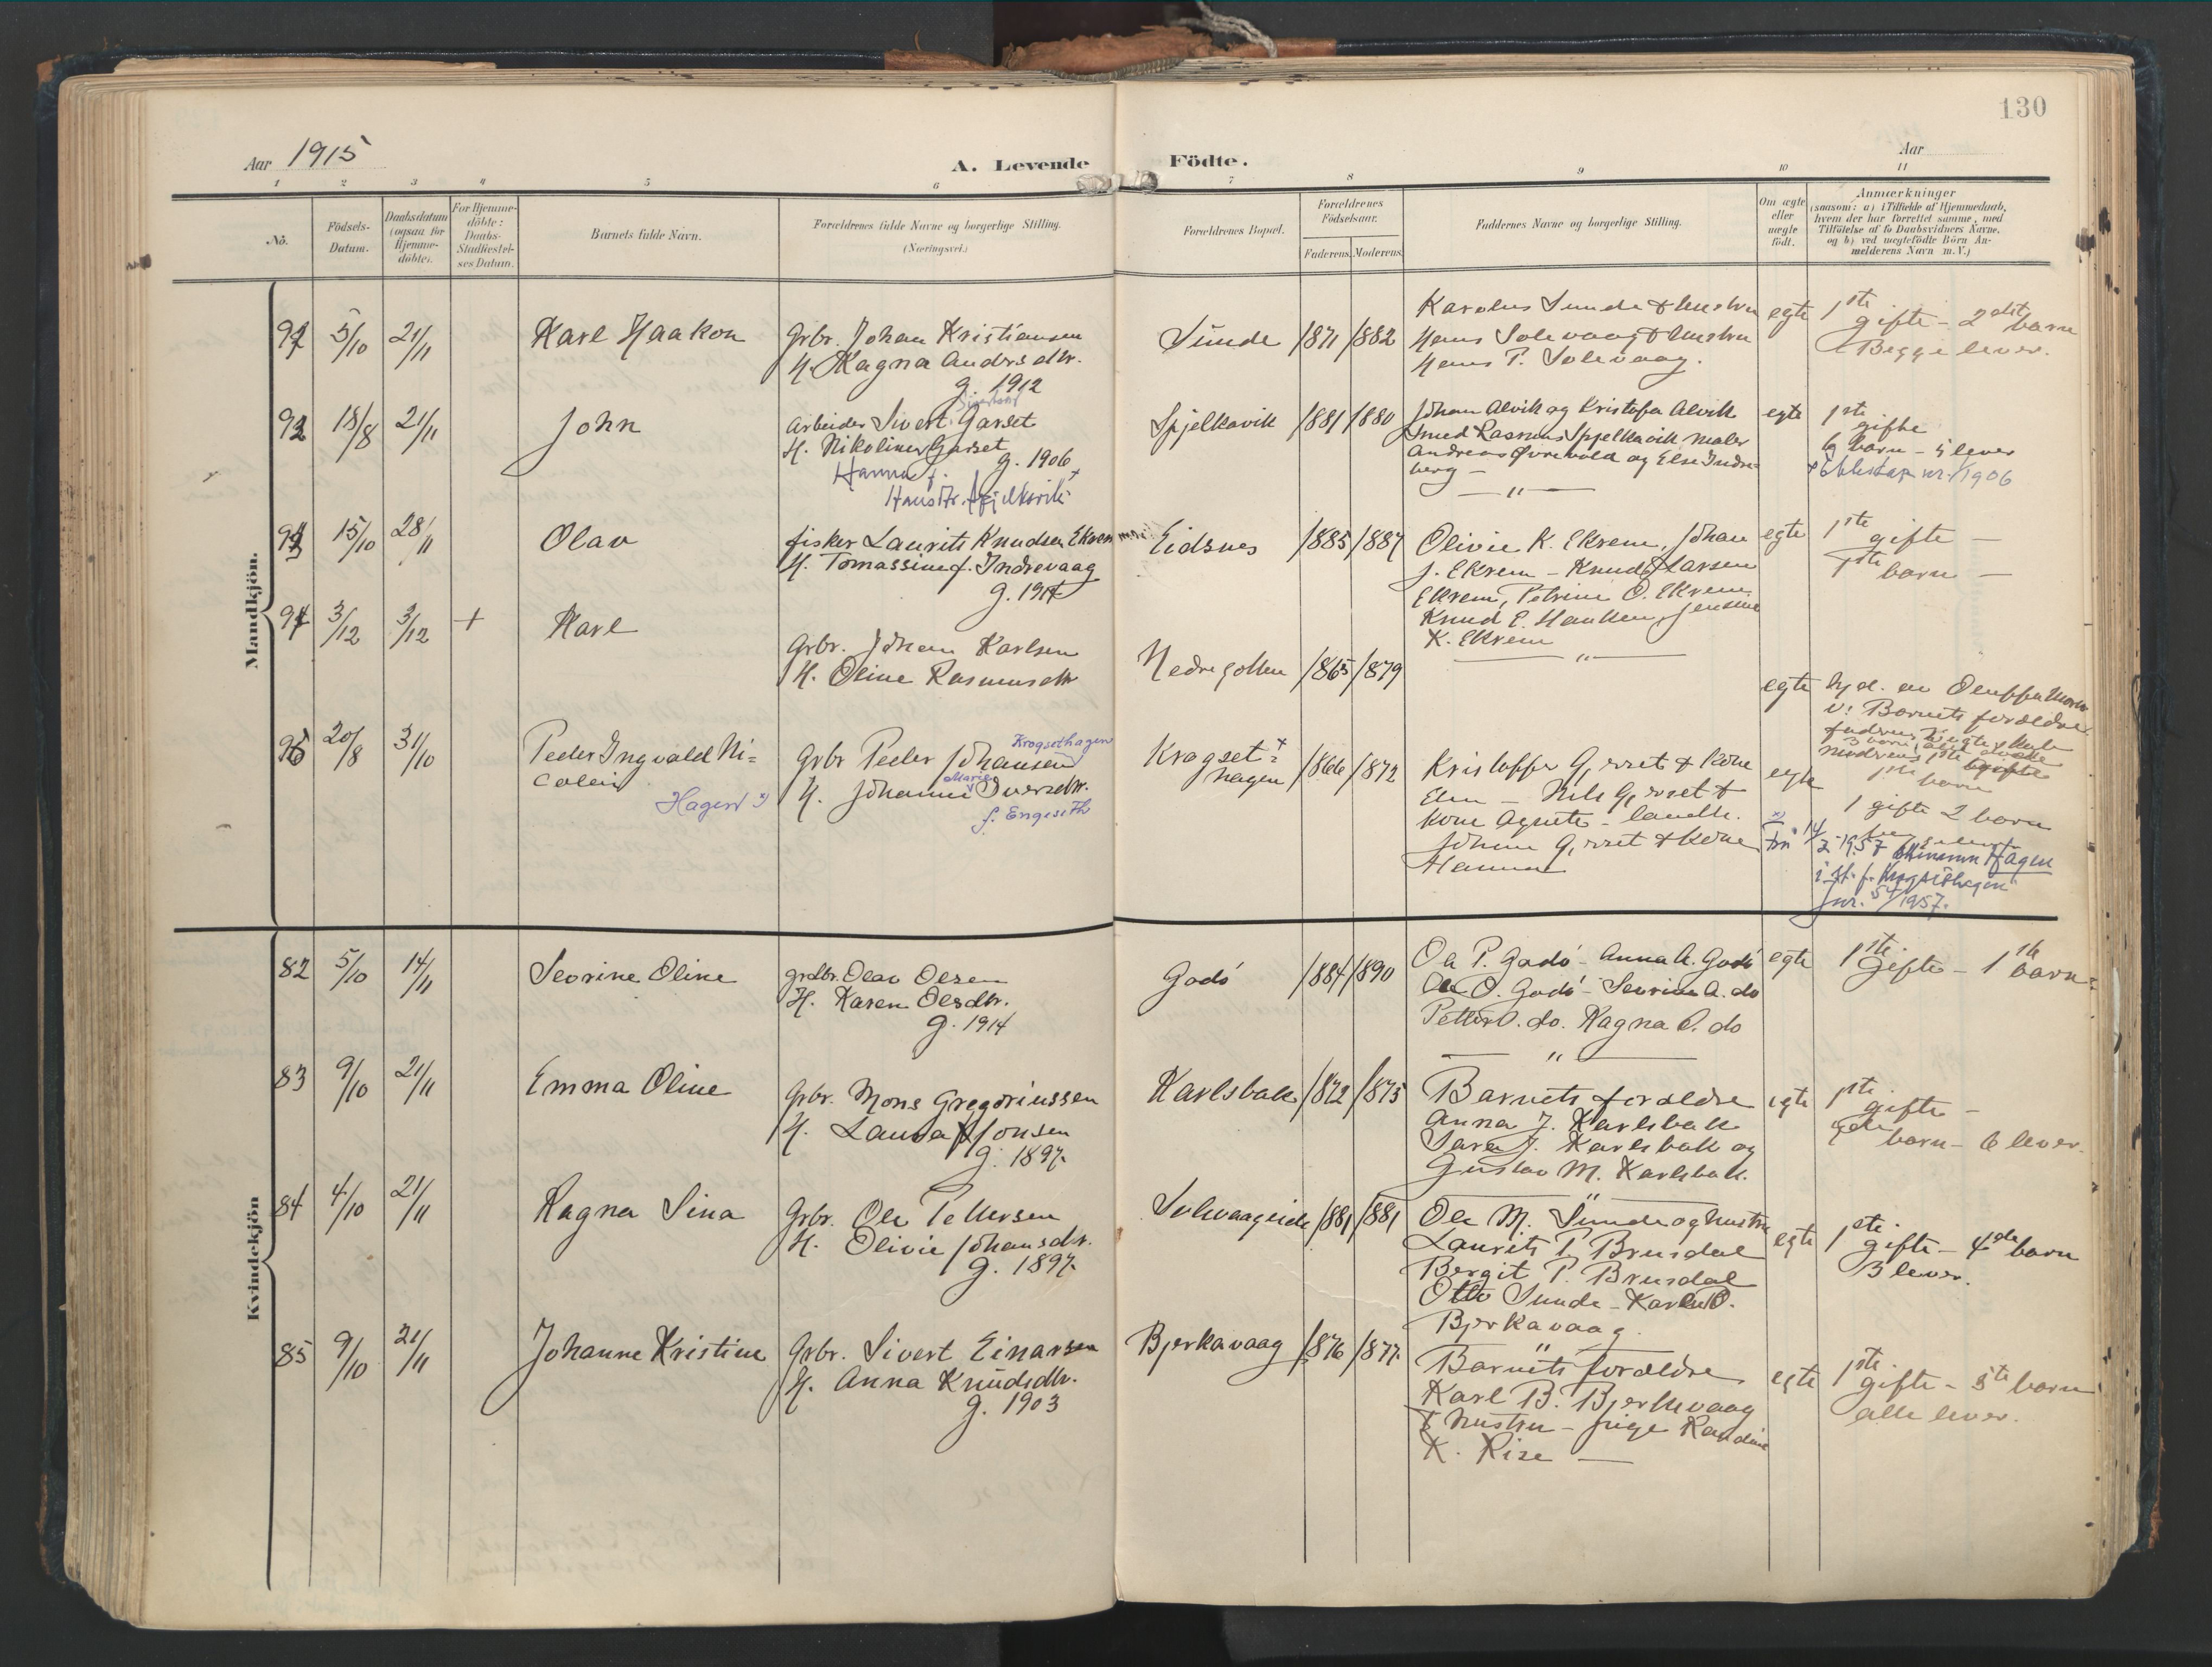 130
Aar 1915
A. Levende Födte.
Aar
1 2 3 4 5 6 7 8 9 10 11
No.
Födsels-Datum.
Daabsdatum (ogsaa for Hjemme-döbte).
For Hjemme-döbte: Daabs-Stadfæstel-ses Datum.
Barnets fulde Navn.
Forældrenes fulde Navne og borgerlige Stilling.
(Næringsvei.)
Forældrenes Bopæl.
Forældrenes Födselsaar.
Faderens. Moderens.
Faddernes Navne og borgerlige Stilling.
Om ægte eller uægte födt.
Anmærkninger
(saasom: a) i Tilfælde af Hjemmedaab,
hvem der har forrettet samme, med
Tilföielse af to Daabsvidners Navne.
og b) ved uægtefödte Börn An-
melderens Navn m.V.)
Mandkjön.
5/10 21/11 Karl Haakon
Grbr. Johan Kristiansen
H. Ragna Andrsdtr.
g. 1912
Sunde 1871 1882
Karolus Sunde & Hustru
Hans Solevaag & Hustru
Hans P. Solevaag.
egte
1ste gifte - 2det barn
Begge lever.
18/8 21/11 John
Arbeider Sivert Garset
H. Nikoline Garset
g. 1906
Hanna f.
Hansdtr. Spjelkavik +
Spjelkavik 1881 1880
Johan Alvik og Kristofa Alvik
Smed Rasmus Spjelkavik Maler
Andreas Øvrevold og Else Indre-
berg -
— " —
egte
1ste gifte
6 barn - 5 lever
15/10 28/11 Olav
fisker Laurits Knudsen Ekrem
H. Tomassine f. Indrevaag
g. 1914
Eidsnes 1885 1887
Olivie K. Ekrem, Johan
J. Ekrem - Knud Larsen
Ekrem, Petrine O. Ekrem
Knud E. Hanken, Jensine
K. Ekrem
— " —
egte
1ste gifte —
1ste barn —
94 3/12 3/12 + Karl
Grbr. Johan Karlsen
H. Oline Rasmusdtr
Nedregotten 1865 1879
egte
v: Barnets forældre
95 20/8 31/10 Peder Ingvald Ni-
colai
Hagen x)
Krogsethagen
Grbr Peder Johansen
H. Johanne Marie Iversdtr.
f. Engeseth
Kragset-
hagen x 1866 1872
Kristoffer Gjørset & Kone
Elen - Nils Gjørset &
Kone Agnete -
Johan Gjørset & Kone
Hanna
egte
1 gifte 2 barn
14/2 1957
Hagen
i st. f. Krogsethagen
Jnr. 54/1957.
Kvindekjön
82 5/10 14/11 Sevrine Oline
grdbr. Olav Olsen
H. Karen Olsdtr.
g. 1914
Godø 1884 1890
Ola P. Godø - Anna A. Godø
Ole O. Godø - Sevrine A. do
Petter O. do. Ragna O. do
— " —
egte
1ste gifte - 1ste barn.
83 9/10 21/11 Emma Oline
Grbr. Mons Gregoriussen
H. Laura Jonsen
g. 1897
Karlsbak 1872 1875
Barnets forældre
Anna J. Karlsbak
Sara J. Karlsbak og
Gustav M. Karlsbak.
— " —
egte
1ste gifte -
barn - 6 lever.
84 4/10 21/11 Ragna Sina
Grbr. Ole Pettersen
H. Olivie Johansdtr.
g. 1897
Solevaageide 1881 1881
Ole M. Sunde og hustru
Laurits P. Brusdal
Bergit P. Brusdal
Otto Sunde - Karl O.
Bjerkavaag.
— " —
egte
1ste gifte - 4de barn
3 lever.
85 9/10 21/11 Johanne Kristine
Grbr. Sivert Einarsen
H. Anna Knudsdtr.
g. 1903
Bjerkavaag 1876 1877
Barnets forældre
Karl B. Bjerkevaag
& hustru - pige Randine
K. Rise —
egte
1ste gifte - 5te barn
alle lever.